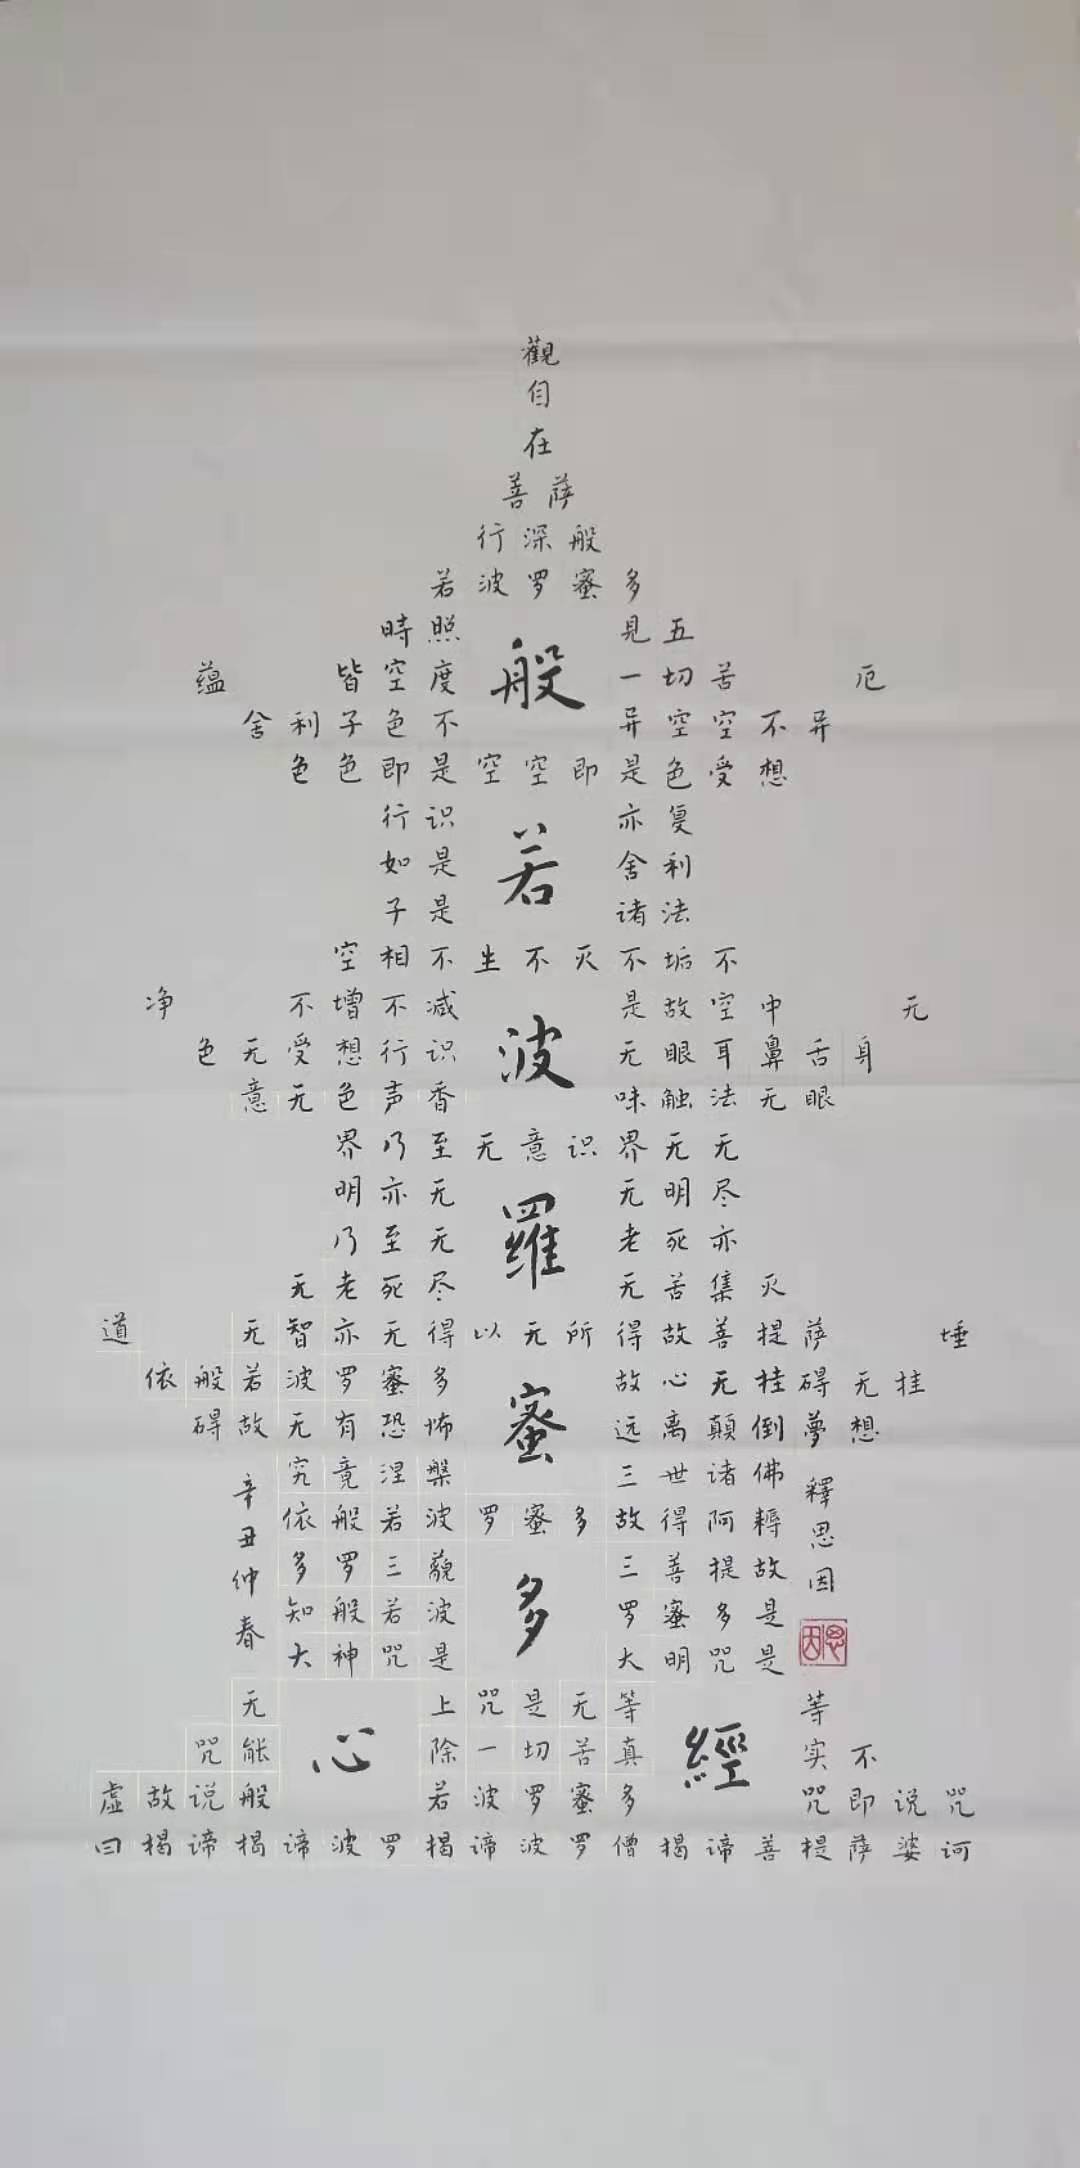 觀
自
在
菩萨
行深般
若波罗蜜多
時照見五
蕴皆空度一切苦厄
般
舍利子色不异空空不异
色色即是空空即是色受想
行识亦复
如是舍利
若
子是诸法
空相不生不灭不垢不
净不增不减是故空中无
色无受想行识无眼耳鼻舌身
波
意无色声香味触法无眼
界乃至无意识界无无
明亦无无明尽
乃至无老死亦
羅
无老死尽无苦集灭
道无智亦无得以无所得故菩提萨埵
依般若波罗蜜多故心无挂碍无挂
碍故无有恐怖远离颠倒夢想
蜜
究竟涅槃三世诸佛
依般若波罗蜜多故得阿耨
多罗三藐三菩提故
知般若波罗蜜多是
多
大神咒是大明咒是
无上咒是无等等
咒能除一切苦真实不
心經
虚故说般若波罗蜜多咒即说咒
曰揭谛揭谛波罗揭谛波罗僧揭谛菩提萨婆诃
辛丑仲春
釋思因
思因